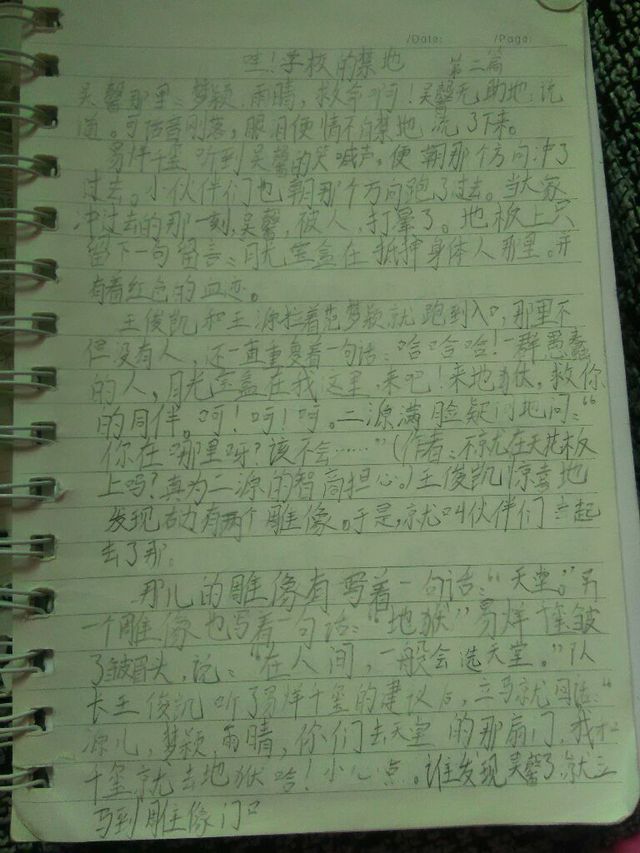 /Date: /Page:
哇!学校的禁地 第二篇
吴馨那里:梦颖,雨晴,救命啊!吴馨无助地说
道。可话音刚落,眼泪便情不自禁地流了下来。
易烊千玺听到吴馨的哭喊声,便朝那个方向冲了
过去。小伙伴们也朝那个方向跑了过去。当大家
冲过去的那一刻,吴馨,被人,打晕了。地板上只
留下一句留言:月光宝盒在抵押身体人那里。并
有着红色的血迹。
王俊凯和王源拉着范梦颖就跑到入口,那里不
但没有人,还一直重复着一句话:哈哈哈!一群愚蠢
的人,月光宝盒在我这里,来吧!来地狱,救你
的同伴。呵!呵!呵。二源满脸疑问地问:“
你在哪里呀?该不会……”(作者:不就在天花板
上吗?真为二源的智商担心。)王俊凯惊喜地
发现右方有两个雕像。于是,就叫伙伴们一起
去了那。
那儿的雕像有写着一句话:“天堂。”另
一个雕像也写着一句话:“地狱”易烊千玺皱
了皱眉头,说:“在人间,一般会选天堂。”队
长王俊凯听了易烊千玺的建议后,立马就回话:“
源儿,梦颖,雨晴,你们去天堂的那扇门,我和
千玺就去地狱哈!小心点。谁发现吴馨了,就立
马到雕像门口